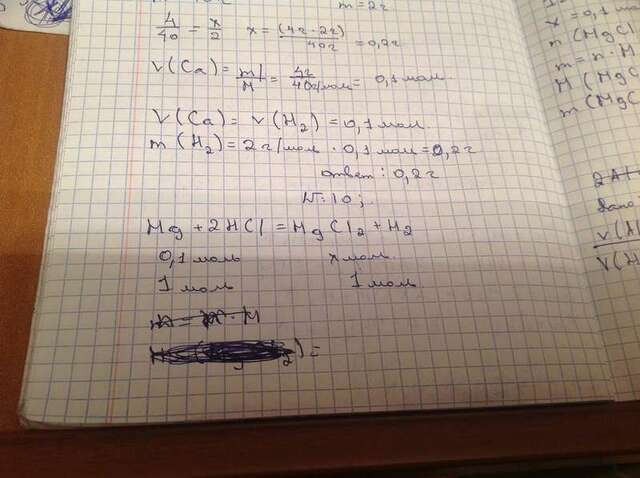 m = 2г
4/40 = x/2 x = (4г · 2г)/40г = 0,2г
V(Ca) = m/M = 4г/40г/мол = 0,1 мол.
V(Ca) = V(H2) = 0,1 мол.
m(H2) = 2г/мол · 0,1 мол = 0,2г
ответ: 0,2г
N: 10;
Mg + 2HCl = MgCl2 + H2
0,1 моль x мол.
1 моль 1 мол.
m = · M
) =
x = 0,1 мол
m (MgCl
m = n · M
M (MgC
m (MgC
2Al
Дано
V(Al
V(H